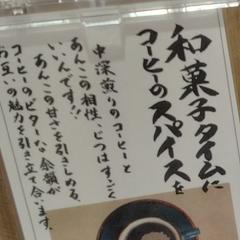 和菓子タイムに
コーヒーのスパイスを
中深煎りのコーヒーと
あんこの相性、じつはすごく
いいんです!!
あんこの甘さを引きしめる、
コーヒーのビターな余韻が
お互いの魅力を引き立て合います。